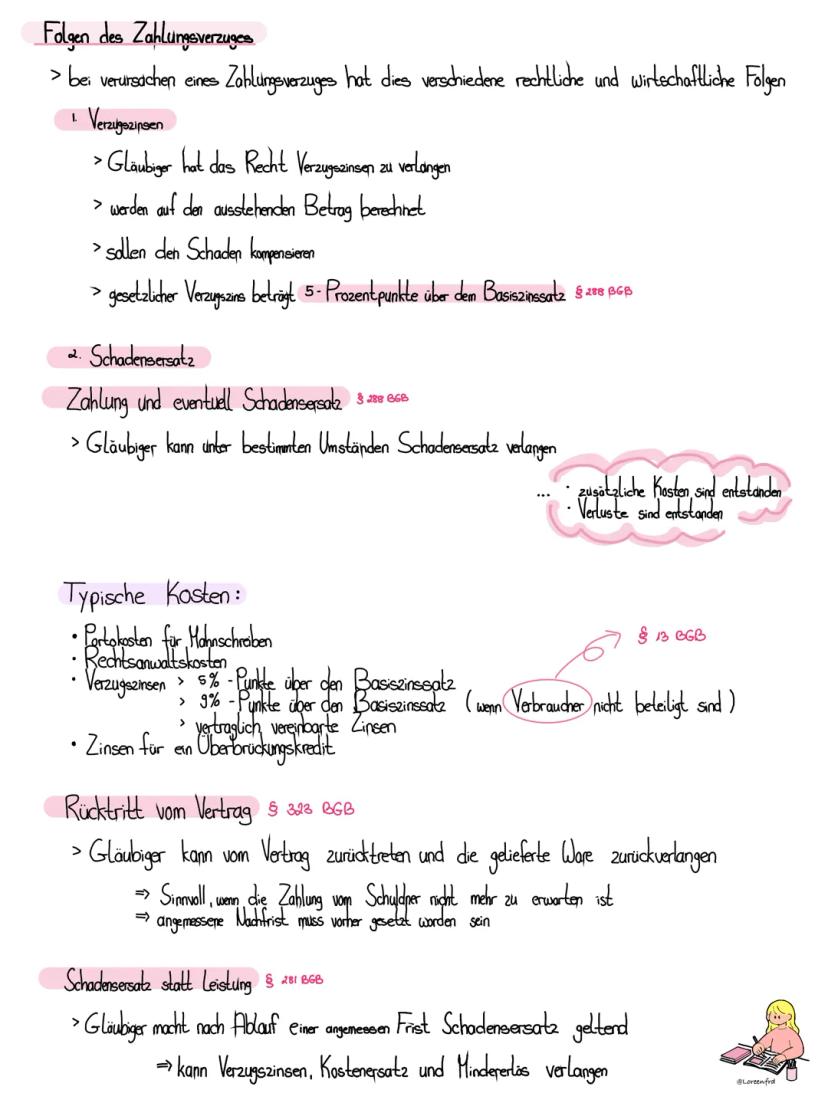 Folgen des Zahlungsverzuges
> bei verursachen eines Zahlungsverzuges hat dies verschiedene rechtliche und wirtschaftliche Folgen
1. Verzugszinsen
> Gläubiger hat das Recht Verzugszinsen zu verlangen
> werden auf den ausstehenden Betrag berechnet
> sollen den Schaden kompensieren
> gesetzlicher Verzugszins beträgt 5-Prozentpunkte über dem Basiszinssatz § 288 BGB
2. Schadensersatz
Zahlung und eventuell Schadensersatz § 288 BGB
> Gläubiger kann unter bestimmten Umständen Schadensersatz verlangen
... · zusätzliche Kosten sind entstanden
· Verluste sind entstanden
Typische Kosten:
• Portokosten für Mahnschreiben
• Rechtsanwaltskosten
• Verzugszinsen > 5% -Punkte über den Basiszinssatz
> 9% -Punkte über den Basiszinssatz (wenn Verbraucher nicht beteiligt sind)
§ 13 BGB
> vertraglich vereinbarte Zinsen
• Zinsen für ein Überbrückungskredit
Rücktritt vom Vertrag § 323 BGB
> Gläubiger kann vom Vertrag zurücktreten und die gelieferte Ware zurückverlangen
⇒ Sinnvoll, wenn die Zahlung vom Schuldner nicht mehr zu erwarten ist
⇒ angemessene Nachfrist muss vorher gesetzt worden sein
Schadensersatz statt Leistung § 281 BGB
> Gläubiger macht nach Ablauf einer angemessen Frist Schadensersatz geltend
⇒ kann Verzugszinsen, Kostenersatz und Mindererlös verlangen
@Loreenfrd